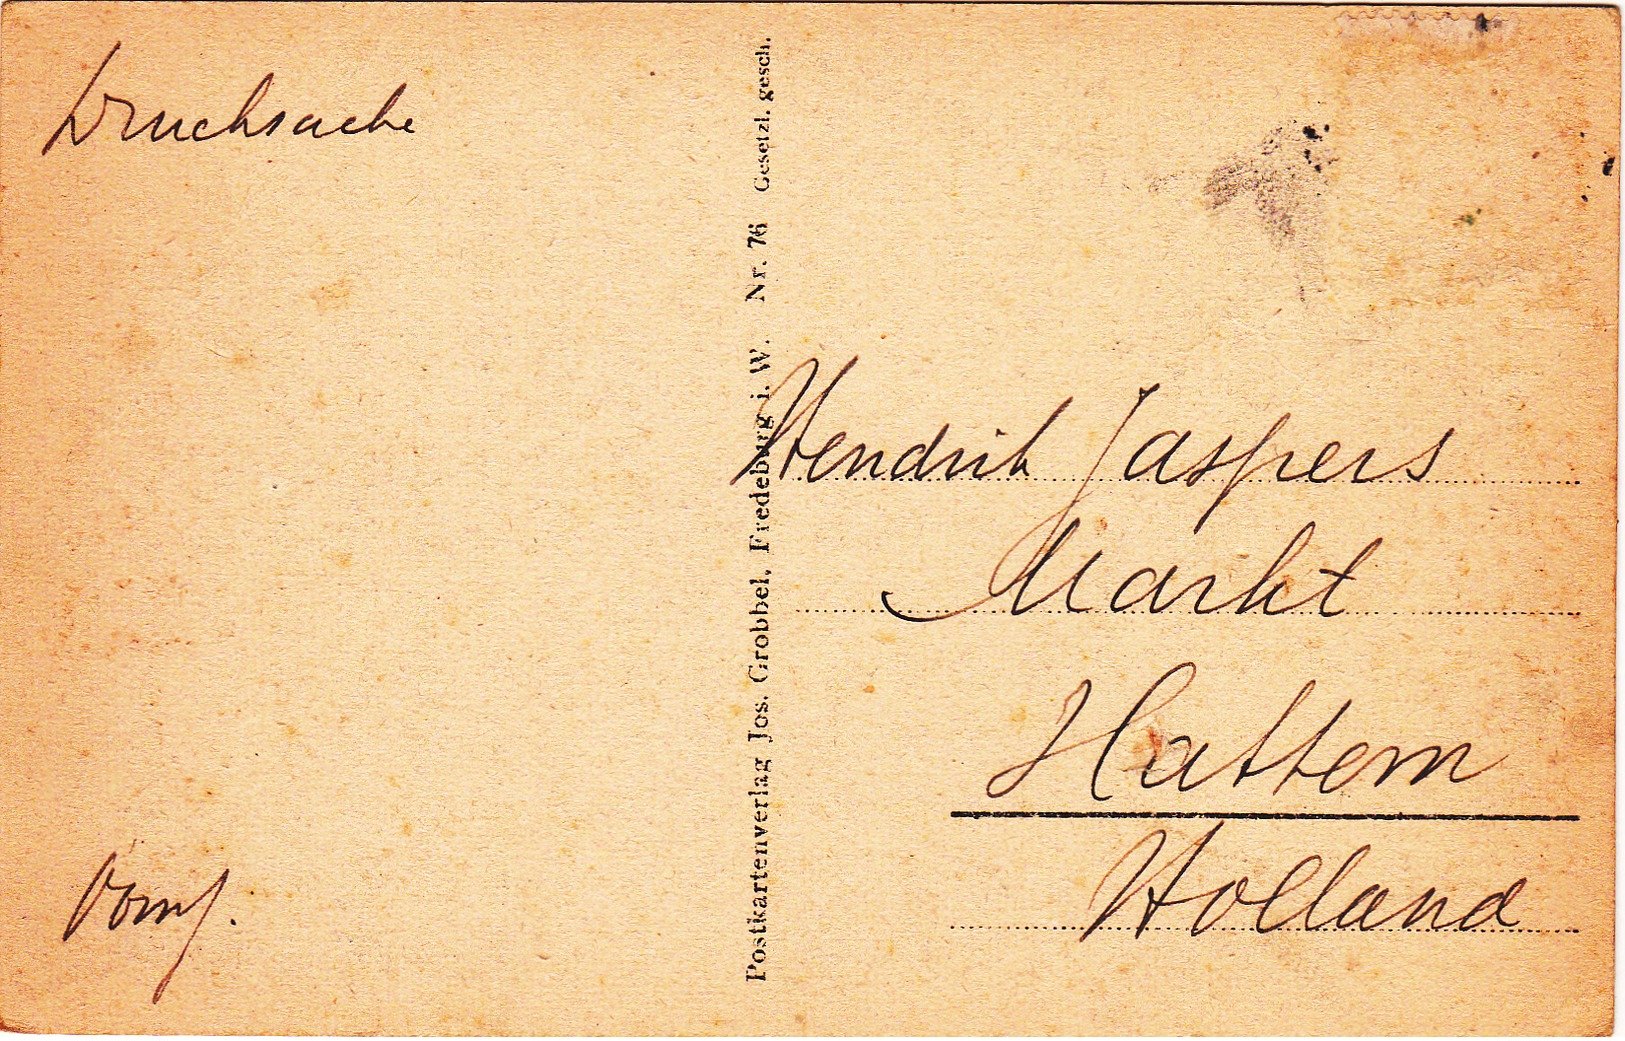 Drucksache
Postkartenverlag Jos. Grobbel, Fredeburg i. W. Nr. 76 Gesetzl. gesch.
Hendrik Jaspers
Markt
Hattem
Holland